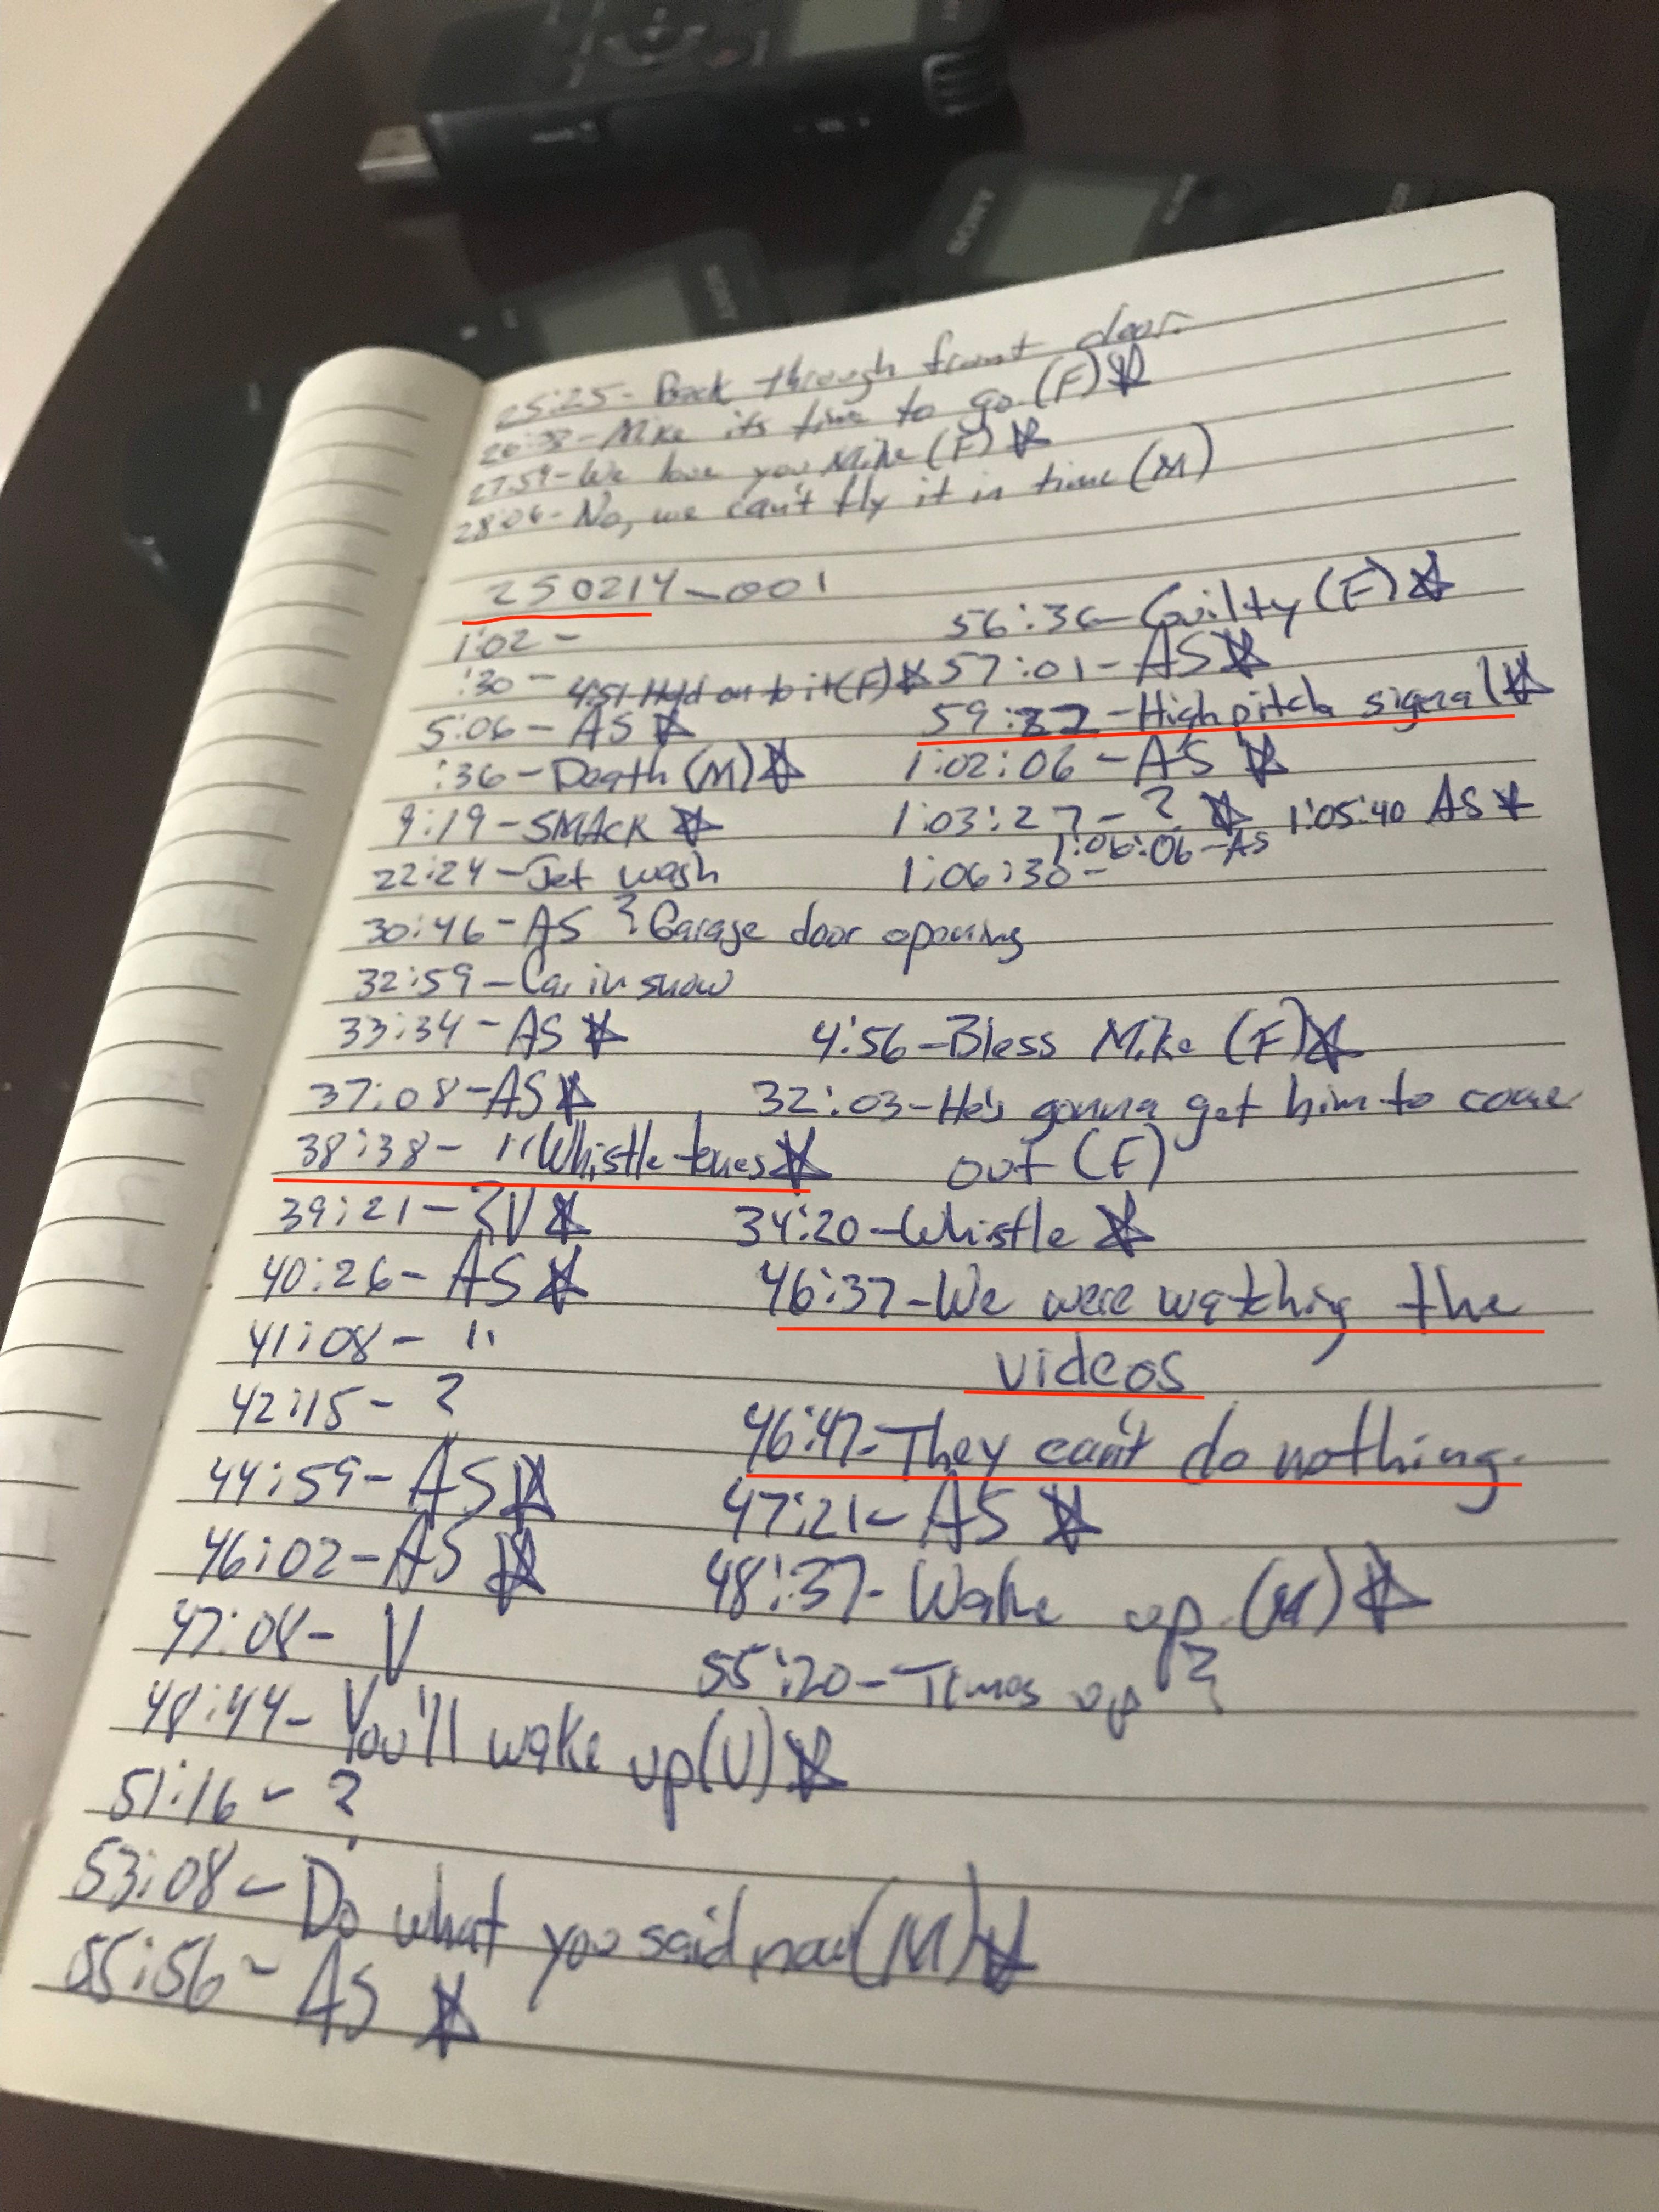 SONY
SONY
25:25- Back through front door.
26:38- Mike its time to go (F)
27:59- We love you Mike (F)
28:06- No, we can't fly it in time (M)
250214-001
1:02 -
:30 - 4:51 Hold on to it (F)
5:06 - AS
:36 - Death (M)
9:19 - SMACK
22:24 - Jet wash
30:46 - AS ? Garage door opening
32:59 - Car in snow
33:34 - AS
37:08 - AS
38:38 - 11 Whistle tones
39:21 - ?V
40:26 - AS
41:08 - 11
42:15 - ?
44:59 - AS
46:02 - AS
47:08 - V
48:44 - You'll wake up (V)
51:16 - ?
53:08 - Do what you said now (M)
55:56 - AS
56:36 - Guilty (F)
57:01 - AS
59: - High pitch signal
1:02:06 - AS
1:03:27 - ? 1:05:40 AS
1:06:06 - AS
1:06:30 -
4:56 - Bless Mike (F)
32:03 - He's gonna get him to come
out (F)
34:20 - Whistle
46:37 - We were watching the
videos
46:47 - They can't do nothing.
47:21 - AS
48:37 - Wake up (M)
55:20 - Times up ?